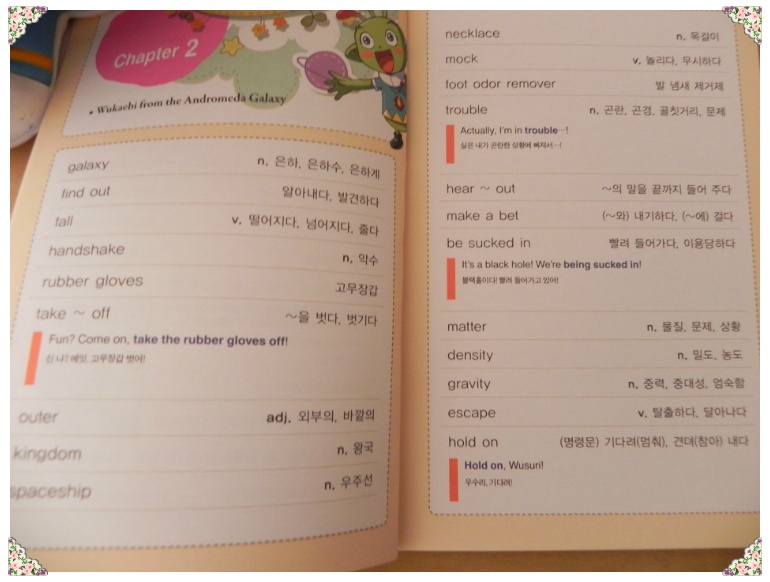 Chapter 2
• Wukaebi from the Andromeda Galaxy
galaxy n. 은하, 은하수, 은하계
find out 알아내다, 발견하다
fall v. 떨어지다, 넘어지다, 줄다
handshake n. 악수
rubber gloves 고무장갑
take ~ off ~을 벗다, 벗기다
Fun? Come on, take the rubber gloves off!
신 나? 에잇, 고무장갑 벗어!
outer adj. 외부의, 바깥의
kingdom n. 왕국
spaceship n. 우주선
necklace n. 목걸이
mock v. 놀리다, 무시하다
foot odor remover 발 냄새 제거제
trouble n. 곤란, 곤경, 골칫거리, 문제
Actually, I'm in trouble…!
실은 내가 곤란한 상황에 빠져서…!
hear ~ out ~의 말을 끝까지 들어 주다
make a bet (~와) 내기하다, (~에) 걸다
be sucked in 빨려 들어가다, 이용당하다
It's a black hole! We're being sucked in!
블랙홀이다! 빨려 들어가고 있어!
matter n. 물질, 문제, 상황
density n. 밀도, 농도
gravity n. 중력, 중대성, 엄숙함
escape v. 탈출하다, 달아나다
hold on (명령문) 기다려(멈춰), 견뎌(참아) 내다
Hold on, Wusuri!
우수리, 기다려!